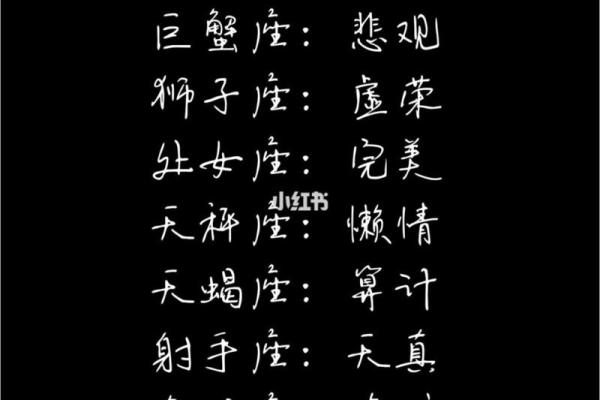 巨蟹座：悲观
狮子座：虚荣
处女座：完美
小红书
天秤座：懒惰
天蝎座：算计
射手座：天真